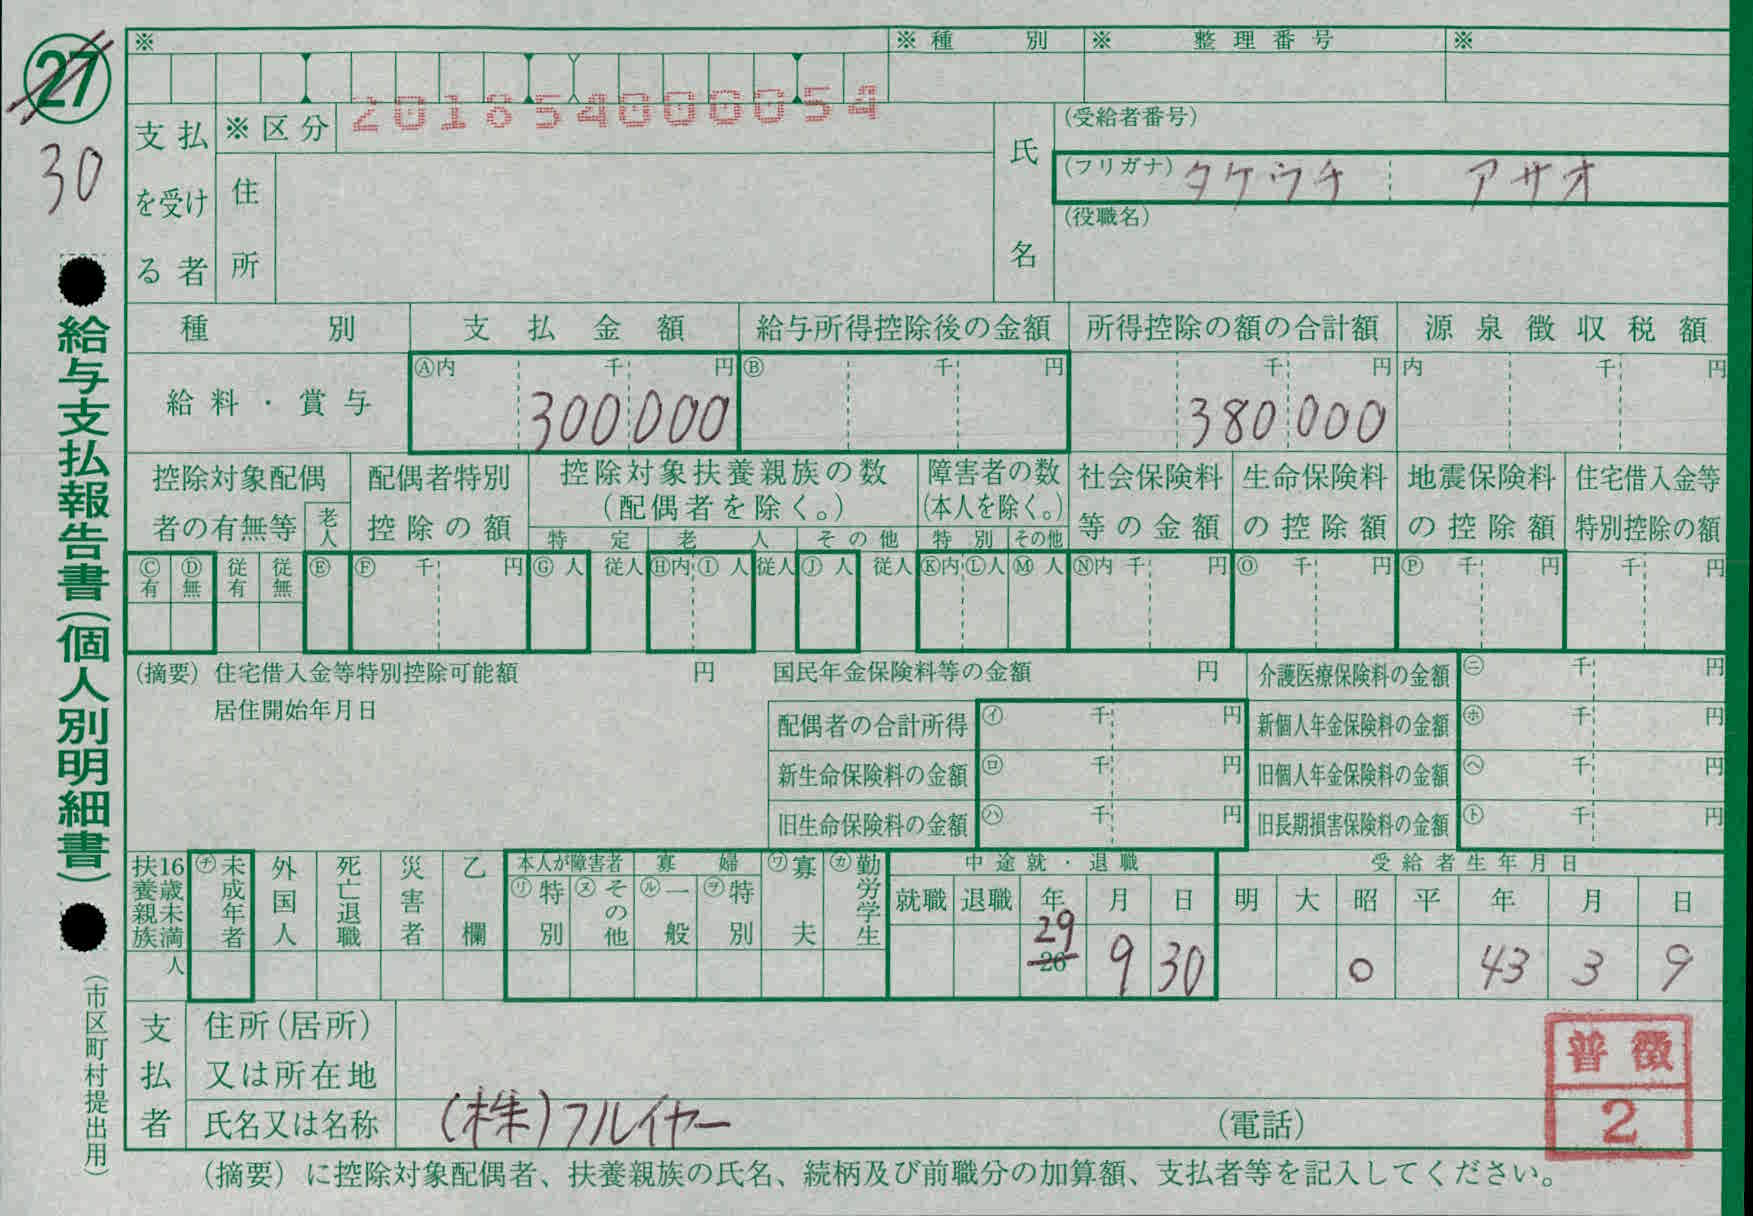 ㉗
30
給与支払報告書(個人別明細書)
(市区町村提出用)
※
※ 種 別
※ 整 理 番 号
※
201854000054
支払を受ける者
※ 区 分
住所
氏名
(受給者番号)
(フリガナ) タケウチ アサオ
(役職名)
種 別
支 払 金 額
給与所得控除後の金額
所得控除の額の合計額
源 泉 徴 収 税 額
給 料 ・ 賞 与
Ⓐ内 千 円
300 000
Ⓑ 千 円
千 円
380 000
内 千 円
控除対象配偶者の有無等
老人
配偶者特別控除の額
控除対象扶養親族の数(配偶者を除く。)
特 定
老 人
その他
障害者の数(本人を除く。)
特 別
その他
社会保険料等の金額
生命保険料の控除額
地震保険料の控除額
住宅借入金等特別控除の額
Ⓒ有 Ⓓ無 従有 従無 Ⓔ Ⓕ 千 円 Ⓖ 人 従人 Ⓗ内 Ⓘ 人 従人 Ⓙ 人 従人 Ⓚ内 Ⓛ人 Ⓜ 人 Ⓝ内 千 円 Ⓞ 千 円 Ⓟ 千 円 千 円
(摘要) 住宅借入金等特別控除可能額 円
国民年金保険料等の金額 円
居住開始年月日
介護医療保険料の金額 ㋥ 千 円
配偶者の合計所得 ㋑ 千 円
新個人年金保険料の金額 ㋭ 千 円
新生命保険料の金額 ㋺ 千 円
旧個人年金保険料の金額 ㋬ 千 円
旧生命保険料の金額 ㋩ 千 円
旧長期損害保険料の金額 ㋣ 千 円
16歳未満扶養親族
人
㋠未成年者
外国人
死亡退職
災害者
乙欄
本人が障害者
㋷特別
㋦その他
寡 婦
㋸一般
㋾特別
㋻寡夫
㋕勤労学生
中 途 就 ・ 退 職
就職 退職 年 月 日
29
26 9 30
受 給 者 生 年 月 日
明 大 昭 平 年 月 日
○ 43 3 9
支払者
住所(居所)又は所在地
氏名又は名称
(株)フルイヤー
(電話)
普 徴
2
(摘要)に控除対象配偶者、扶養親族の氏名、続柄及び前職分の加算額、支払者等を記入してください。